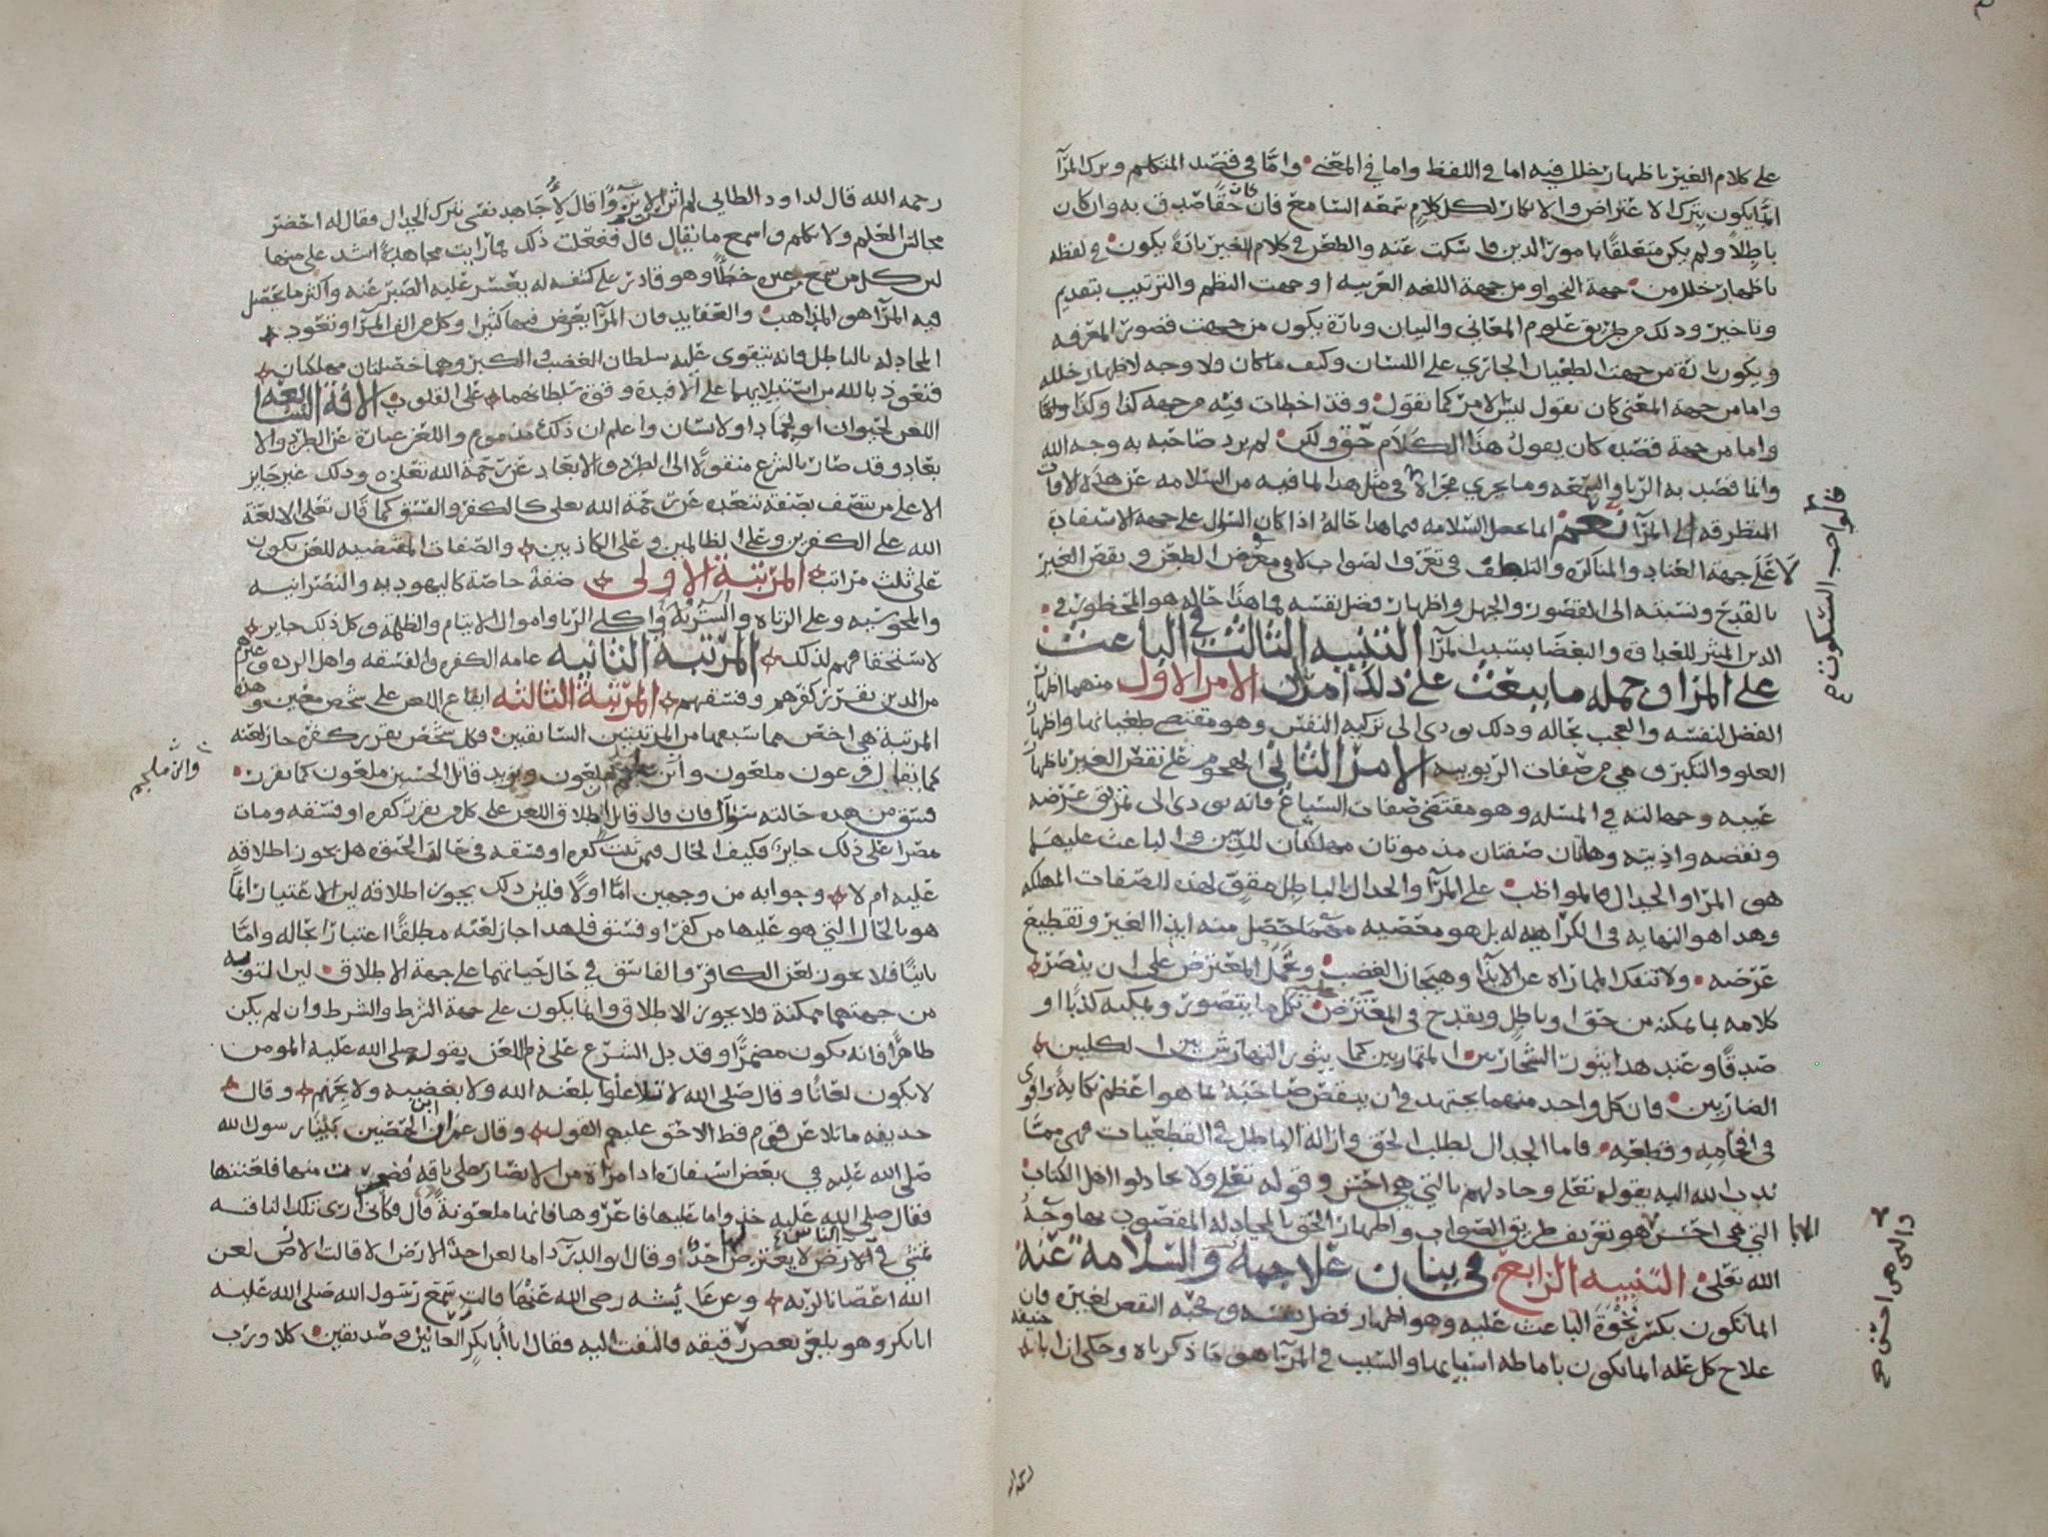 على كلام الغير باظهار خلل فيه اما في اللفظ واما في المعنى واما في قصد المتكلم وترك المرآ
انما يكون بترك الاعتراض والانكار لكل كلام سمعه السامع فان كان حقا صدق به وان كان
باطلا ولم يكن متعلقا بامور الدين فاسكت عنه والطعن في كلام الغير تارة يكون في لفظه
باظهار خلل من جهة النحو او من جهة اللغه العربيه او جهت النظم والترتيب بتقديم
وتاخير وذلك من طريق علوم المعاني والبيان وتارة يكون من جهت قصور المعرفه
ويكون تارة من جهت الطغيان الجاري على اللسان وكيف ما كان فلا وجه لاظهار خلله
واما من جهة المعنى كان يقول ليس الامر كما تقول وقد اخطات فيه من جهه كذا وكذا
واما من جهة قصده كان يقول هذا الكلام حق ولكن لم يرد صاحبه به وجه الله
وانما قصد به الريا والسمعه وما يجري مجراه في مثل هذا لما فيه من السلامه عن هذه الافات
المتطرقه الى المرآ نعم انما تحصل السلامه فيما هذا حاله اذا كان السؤال على جهه الاستفادة
لا على جهة العناد والمناكرة والتلطف في تعرف الصواب لا في معرض الطعن ونقص الغير
بالقدح ونسبته الى القصور والجهل واظهار فضل نفسه فما هذا حاله هو المحظور في
الدين المثير للعداوة والبغضا بسبب المرآ التنبيه الثالث في الباعث
على المرا وجمله ما يبعث على ذلك امران الامر الاول منهما اظهار
الفضل لنفسه والعجب بحاله وذلك يودى الى تزكيه النفس وهو مقتضى طغيانها واظهار
العلو والتكبر وهي من صفات الربوبيه الامر الثاني الهجوم على نقص الغير باظهار
عيبه وجهالته في المسله وهو مقتضى صفات السباع فانه يودى الى تمزيق عرضه
ونقصه واذيته وهاتان صفتان مذمومتان مهلكتان للدين والباعث عليهما
هو المرا والجدال فالمواظب على المرآ والجدال بالباطل مقو لهذه الصفات المهلكه
وهذا هو النهايه في الكراهيه له بل هو معصيه مهما حصل منه ايذا الغير وتقطيع
عرضه ولا تنفك المماراه عن الايذا وهيجان الغضب وحمل المعترض على ان ينصر
كلامه بما يمكنه من حق او باطل ويقدح في المعترض عليه بكل ما يتصور ويمكنه كذبا او
صدقا وعند هذا يثور الشجار بين المتماريين كما يثور التهارش بين الكلبين
الضاريين فان كل واحد منهما يجتهد في ان ينقص صاحبه بما هو اعظم نكاية واقوى
في افحامه وقطعه فاما الجدال لطلب الحق وازالة الباطل في القطعيات فهي مما
ندب الله اليه بقوله تعلى وجادلهم بالتي هي احسن وقوله تعلى ولا تجادلوا اهل الكتاب
الا بالتي هي احسن هو تعريف طريق الصواب واظهار الحق بالمجادله المقصود بها وجه
الله تعلى التنبيه الرابع في بيان علاجه والسلامه عنه
انما تكون بكسر نخوة الباعث عليه وهو اظهار فضل نفسه ومحبه النقص لغيره فان
علاج كل عله انما تكون باماطه اسبابها والسبب في المرآ هو ما ذكرناه وحكي ان ابا حنيفه
فالواجب السكوت
دالتى هى احسن
رحمه الله قال لداود الطايى لم اثرت الانزوا قال لاجاهد نفسي بترك الجدال فقال له احضر
مجالس العلم ولا تكلم واسمع ما يقال قال ففعلت ذلك فما رايت مجاهدة اشد على منها
لان كل من سمع من غيره خطأ وهو قادر على كشفه له يعسر عليه الصبر عنه واكثر ما يحصل
فيه المرآ هو المذاهب والعقايد فان المرآ يعرض فيها كثيرا وكل من الف المرآ وتعود
المجادله بالباطل فانه يتقوى عليه سلطان الغضب والكبر وهما خصلتان مهلكتان
فنعوذ بالله من استيلايهما على الافيدة وقوة سلطانهما على القلوب الافة السابعه
اللعن لحيوان او لجماد او لانسان واعلم ان ذلك مذموم واللعن عبارة عن الطرد والا
بعاد وقد صار بالشرع منقولا الى الطرد والابعاد عن رحمة الله تعلى وذلك غير جايز
الا على من يتصف بصفه تبعده عن رحمة الله تعلى كالكفر والفسق كما قال تعلى الا لعنة
الله على الكفرين وعلى الظالمين وعلى الكاذبين والصفات المقتضيه للعن يكون
على ثلث مراتب المرتبة الاولى صفة خاصة كاليهوديه والنصرانيه
والمجوسيه وعلى الزناه والسرقة واكلي الربا واموال الايتام والظلمة وكل ذلك جايز
لاستحقاقهم لذلك المرتبة الثانيه عامه الكفره والفسقه واهل الرده وغيرهم
من الذين تقرر كفرهم وفسقهم المرتبة الثالثه ايقاع اللعن على شخص معين وهذه
المرتبة هي اخص مما سبقها من المرتبتين السابقتين فكل شخص تقرر كفره جاز لعنه
كما يقال فرعون ملعون وابن ملجم ملعون ويزيد قاتل الحسين ملعون كما تقرر
فسق من هذه حالته سوال فان قال قايل اطلاق اللعن على كل من تقرر كفره او فسقه ومات
مصرا على ذلك جايز فكيف الحال فيمن ثبت كفره او فسقه في حالت الحيوه هل يجوز اطلاقه
عليه ام لا وجوابه من وجهين اما اولا فلان ذلك يجوز اطلاقه لان الاعتبار انما
هو بالحال التي هو عليها من كفر او فسق فلهذا جاز لعنه مطلقا اعتبارا بحاله واما
ثانيا فلا يجوز لعن الكافر والفاسق في حال حياتهما على جهة الاطلاق لان التوبه
من جهتهما ممكنة فلا يجوز الاطلاق وانما يكون على جهة الشرط والشرط وان لم يكن
ظاهرا فانه يكون مضمرا وقد دل الشرع على ذم اللعن بقوله صلى الله عليه المومن
لا يكون لعانا وقال صلى الله لا تلاعنوا بلعنه الله ولا بغضبه ولا بجهنم وقال
حذيفه ما تلاعن قوم قط الا حق عليهم القول وقال عمران ابن الحصين بينا رسول الله
صلى الله عليه في بعض اسفاره اذا امرأة من الانصار على ناقه فضجرت منها فلعنتها
فقال صلى الله عليه خذوا ما عليها فاعروها فانها ملعونة قال فكأني ارى تلك الناقه
تمشي في الارض لا يعترض لها احد وقال ابو الدردا ما لعن احد الارض الا قالت الارض لعن
الله اعصانا لربه وعن عايشه رضى الله عنها قالت سمع رسول الله صلى الله عليه
ابا بكر وهو يلعن بعض رقيقه فالتفت اليه فقال يا ابا بكر العانين وصديقين كلا ورب
وابن ملجم